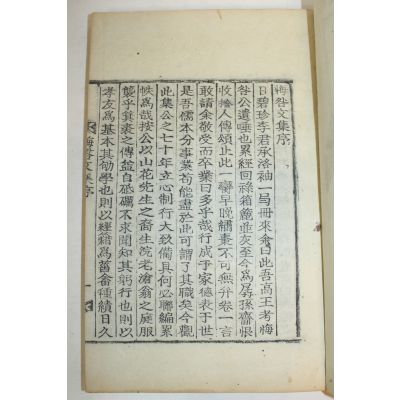 悔咎文集序
日碧珍李君承洛袖一局冊來余曰此吾高王考悔
咎公遺唾也累經回祿箱簏幾灰至今爲孱孫齋恨
收拾人傳頌止此一臠早晚繡棗不可無弁卷一言
敢請余敬受而卒業曰多乎哉行成于家德表于世
是吾儒本分事業苟能盡於此可謂了其職矣今觀
此集公之七十年立心制行大致備具何必聯編累
帙爲哉按公以山花先生之裔生浣老滄翁之庭服
襲乎箕裘之傳益自砥礪不求聞知其躬行也則以
孝友爲基本其劬學也則以經籍爲菑畬種績日久
悔咎文集序
一